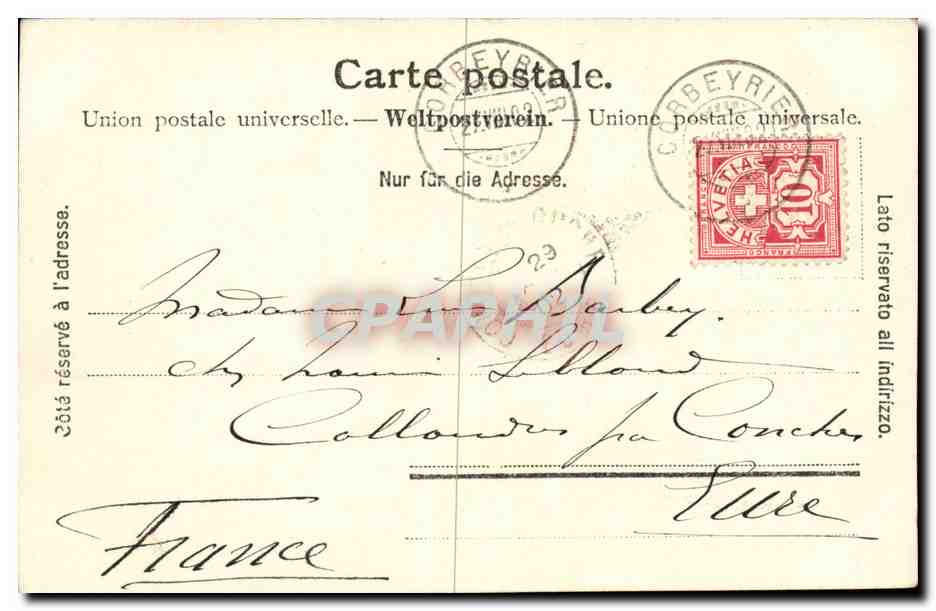 Carte postale.
Union postale universelle. — Weltpostverein. — Unione postale universale.
Nur für die Adresse.
Côté réservé à l'adresse.
Lato riservato all indirizzo.
CORBEYRIER
CORBEYRIER
HELVETIA
FRANCO
10
29
CPARHIL
Madame Barbey.
chez Leblond
Collandres par Conches
Eure
France